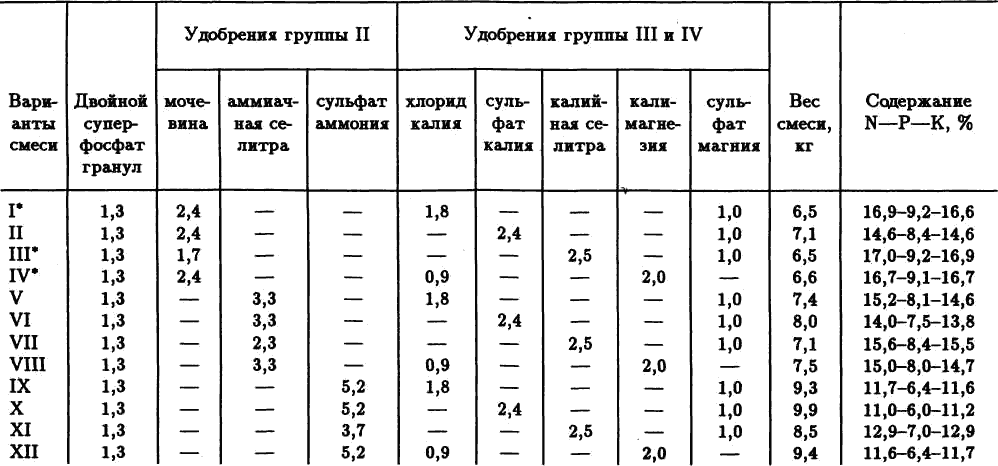 Удобрения группы II Удобрения группы III и IV
Вари- Двойной моче- аммиач- сульфат хлорид суль- калий- кали- суль- Вес Содержание
анты супер- вина ная се- аммония калия фат ная се- магне- фат смеси, N—P—K, %
смеси фосфат литра калия литра зия магния кг
гранул
I* 1,3 2,4 — — 1,8 — — — 1,0 6,5 16,9–9,2–16,6
II 1,3 2,4 — — — 2,4 — — 1,0 7,1 14,6–8,4–14,6
III* 1,3 1,7 — — — — 2,5 — 1,0 6,5 17,0–9,2–16,9
IV* 1,3 2,4 — — 0,9 — — 2,0 — 6,6 16,7–9,1–16,7
V 1,3 — 3,3 — 1,8 — — — 1,0 7,4 15,2–8,1–14,6
VI 1,3 — 3,3 — — 2,4 — — 1,0 8,0 14,0–7,5–13,8
VII 1,3 — 2,3 — — — 2,5 — 1,0 7,1 15,6–8,4–15,5
VIII 1,3 — 3,3 — 0,9 — — 2,0 — 7,5 15,0–8,0–14,7
IX 1,3 — — 5,2 1,8 — — — 1,0 9,3 11,7–6,4–11,6
X 1,3 — — 5,2 — 2,4 — — 1,0 9,9 11,0–6,0–11,2
XI 1,3 — — 3,7 — — 2,5 — 1,0 8,5 12,9–7,0–12,9
XII 1,3 — — 5,2 0,9 — — 2,0 — 9,4 11,6–6,4–11,7